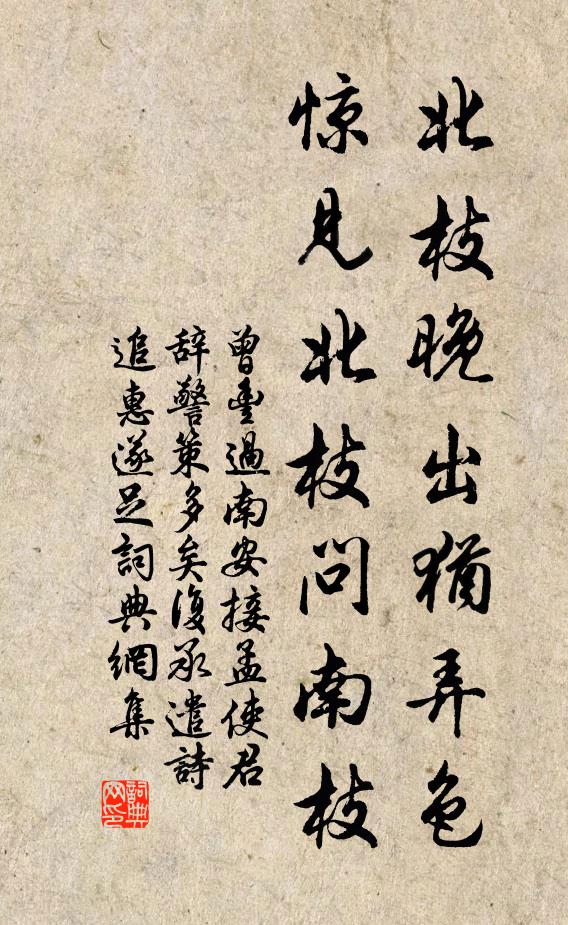 北枝晚出犹弄色
惊见北枝问南枝
曾豊過南安接孟使君
辞警策多矣復承遣詩
追惠遂足詞典網集
詞典网印